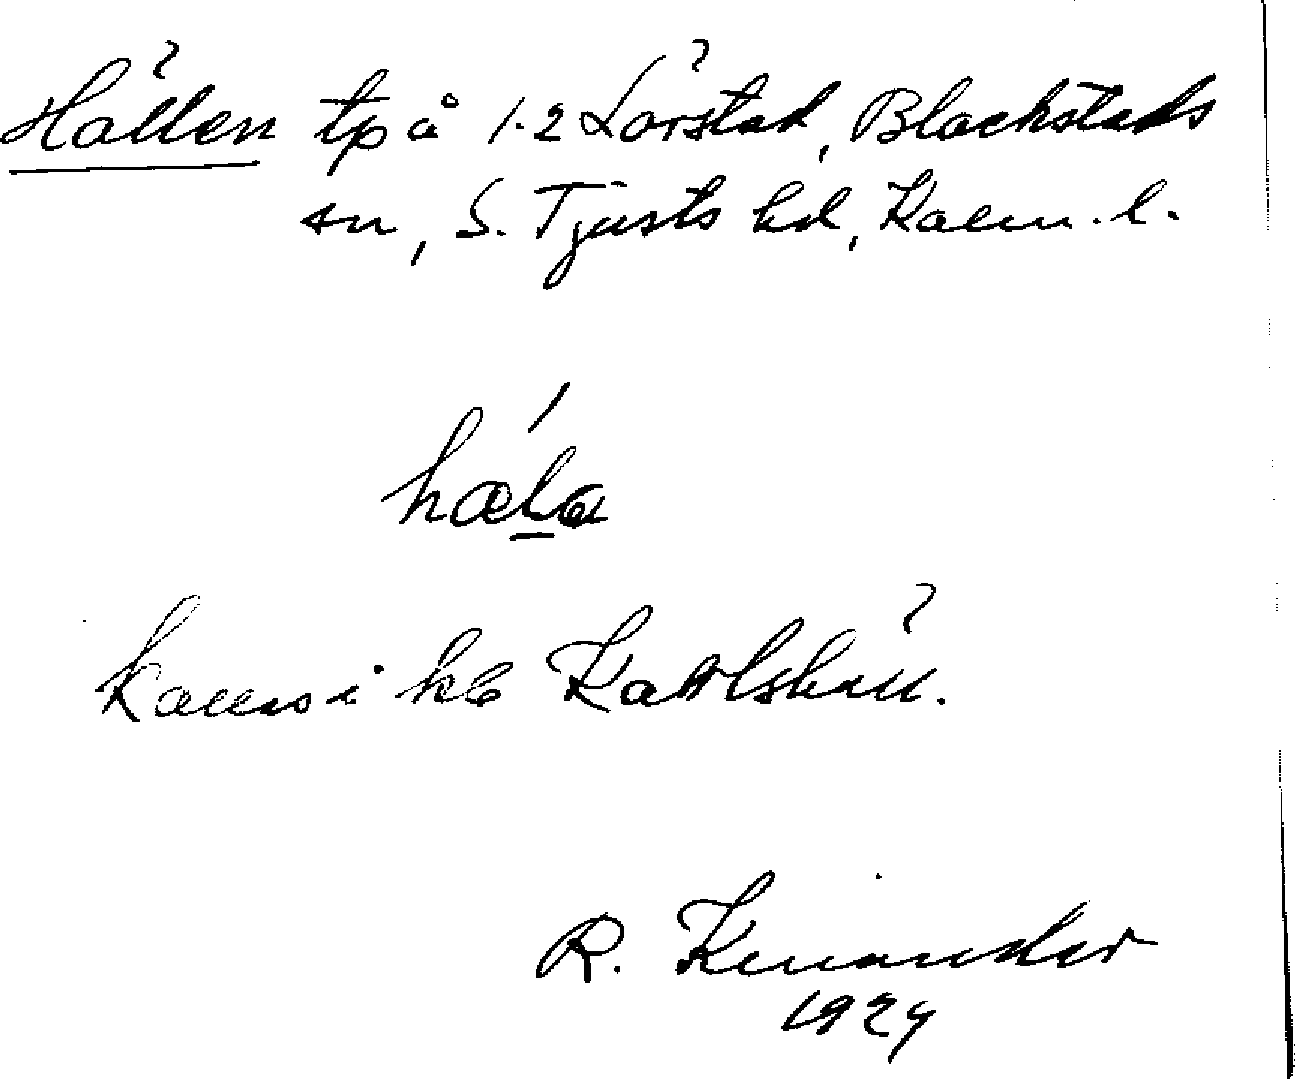 Hällen tp å 1-2 Lörstad, Blackstads
sn, S. Tjusts hd, Kalm. l.
hæla
kallas i kb Kattlshäll.
R. Kenander
1929